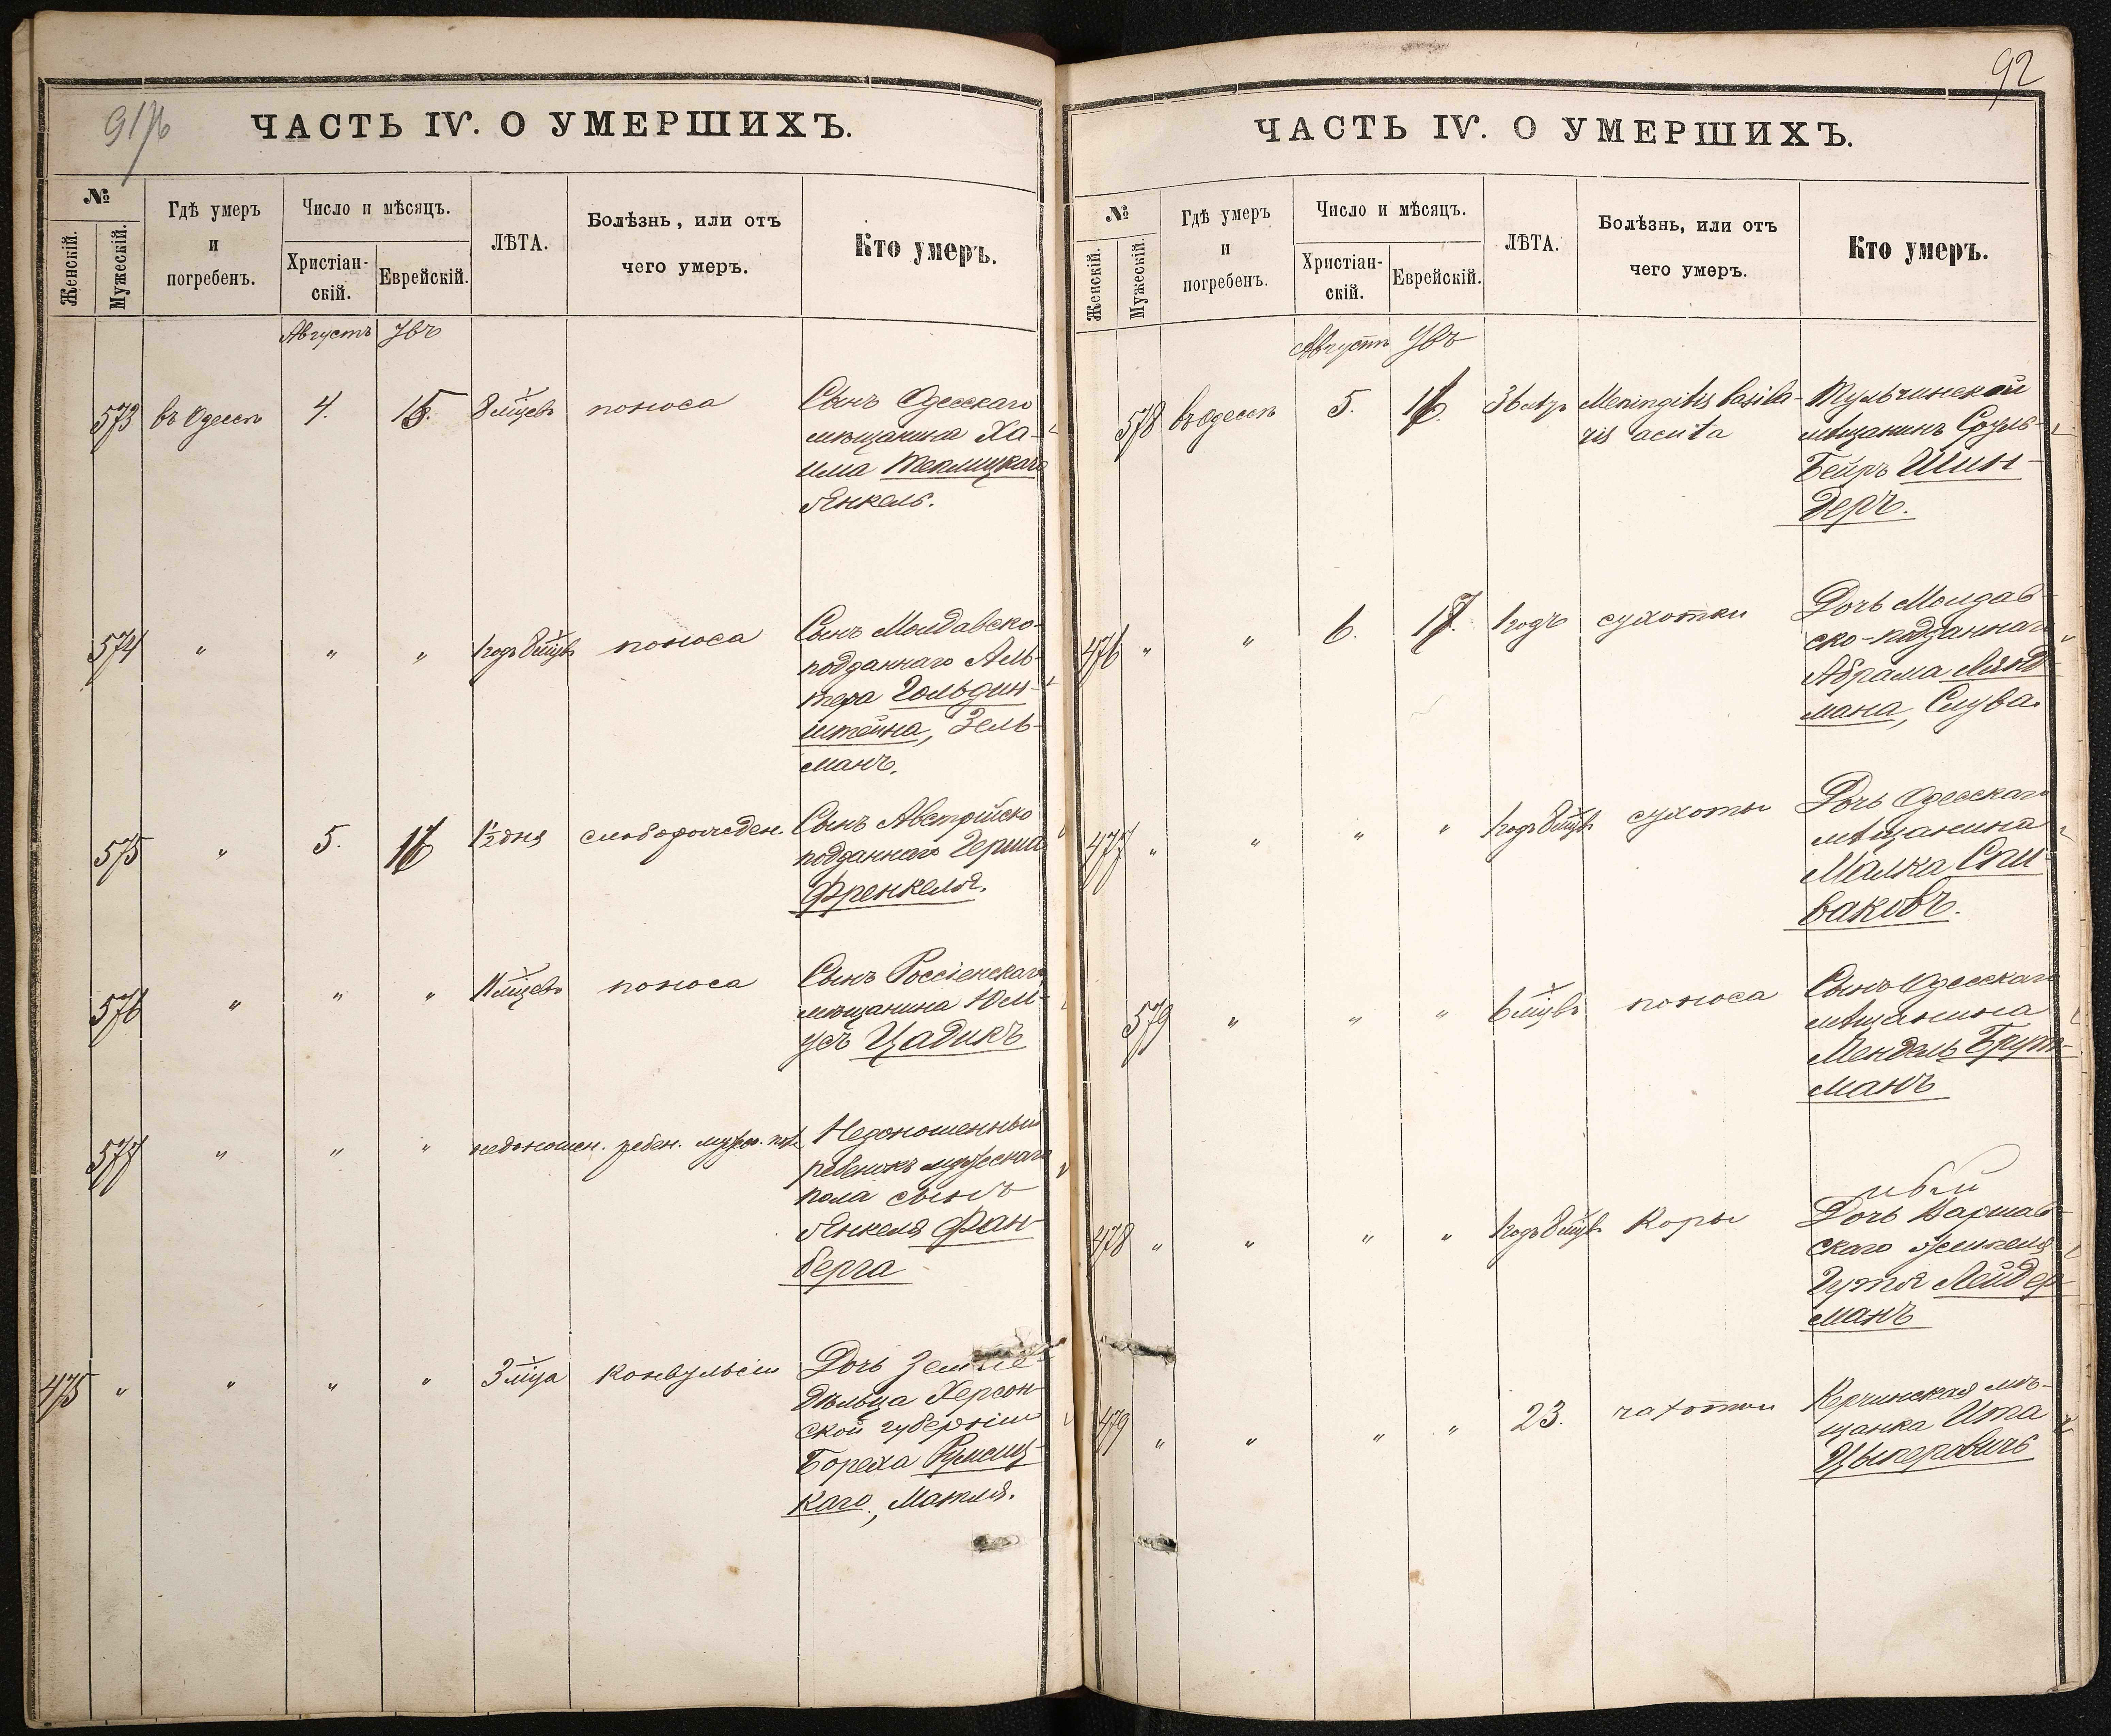 91/76
ЧАСТЬ IV. О УМЕРШИХЪ.
№
Женскій.
Мужескій.
Гдѣ умеръ
и
погребенъ.
Число и мѣсяцъ.
Христіан-
скій.
Еврейскій.
ЛѢТА.
Болѣзнь, или отъ
чего умеръ.
Кто умеръ.
Августъ
573 въ Одессѣ 4. 15. 8 мцевъ поноса Сынъ Одесскаго
мѣщанина Ха-
има Теклицкаго
Янкель.
574 " " " 1 годъ 8 мцвъ поноса Сынъ Молдавско-
подданнаго Аль-
тера Гольдин-
штейна, Зель-
манъ.
575 " 5. 16 1½ дня слаборожден. Сынъ Австрійско
подданнаго Герша
Френкеля.
576 " " " 11 мцевъ поноса Сынъ Россіенскаго
мѣщанина Юль-
усъ Цадикъ
577 " " " недоношен. ребен. муж. пол. Недоношенный
ребенокъ мужескаго
пола сынъ
Янкеля Фан-
берга
475 " " " " 3 мца конвульсіи Дочь Земле-
дѣльца Херсон-
ской губерніи
Бореха
каго, Маткля.
92
ЧАСТЬ IV. О УМЕРШИХЪ.
№
Женскій.
Мужескій.
Гдѣ умеръ
и
погребенъ.
Число и мѣсяцъ.
Христіан-
скій.
Еврейскій.
ЛѢТА.
Болѣзнь, или отъ
чего умеръ.
Кто умеръ.
Августъ
578 въ Одессѣ 5. 16. 36 лѣтъ Meningitis basila- Тульчинской
ris acuta мѣщанинъ Сруль-
Бейръ Шин-
деръ.
476 " " 6. 17. 1 годъ сухотки Дочь Молдав-
ско-подданнаго
Абрама Лянд-
мана, Слува.
477 " " " " 1 годъ 8 мцвъ сухоты Дочь Одесскаго
мѣщанина
Малка Спи-
ваковъ.
579 " " " 6 мцвъ поноса Сынъ Одесскаго
мѣщанина
Мендель Брут-
манъ
478 " " " " 1 годъ 8 мцвъ Коры Дочь Варшав-
скаго жителя
Гутя Лейдер-
манъ
479 " " " " 23. чахотки Керчинская мѣ-
щанка Ита
Цыперовичъ